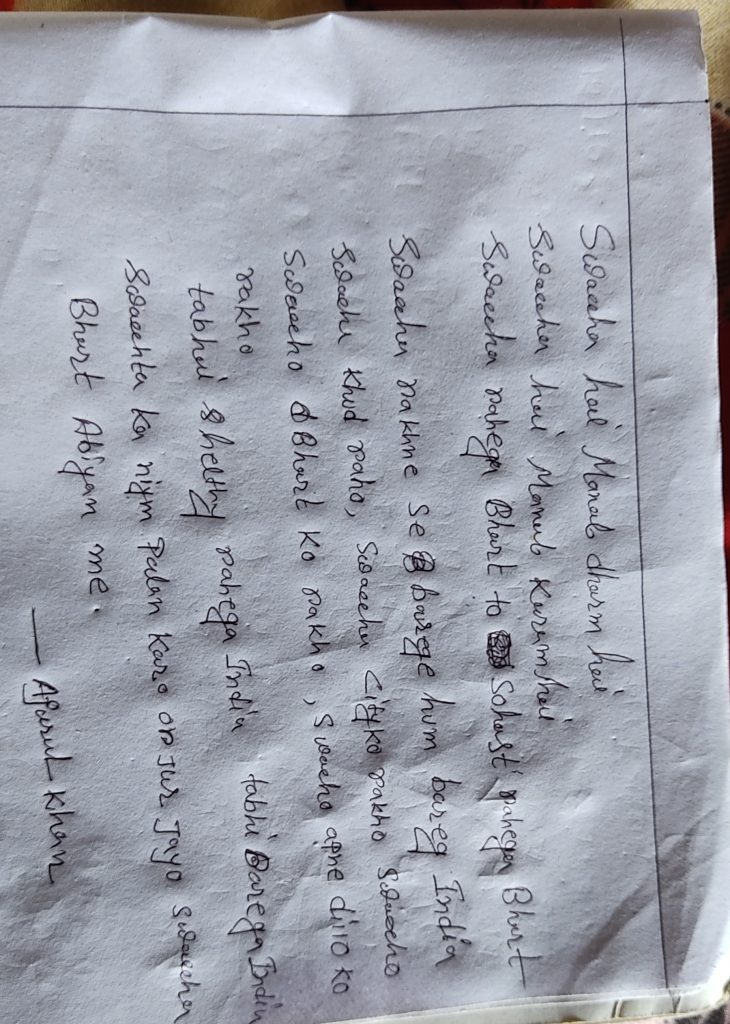 Swaccha hai Manab dharm hai
Swaccha hai Manub Karum hai
Swaccha rahega Bhart to Sohast rahega Bhart
Swacchu rakhne se barege hum bareg India
Swachu khud raho, Swacchu City ko rakho Swaccho
Swaccho Bhart ko rakho, Swacho apne dillo ko
rakho
tabhi Barega India
tabhi Shelthy rahega India
Swacchta ka niym Palan karo or Jur Jayo Swaccha
Bhart Abiyan me.
— Afsrul Khan